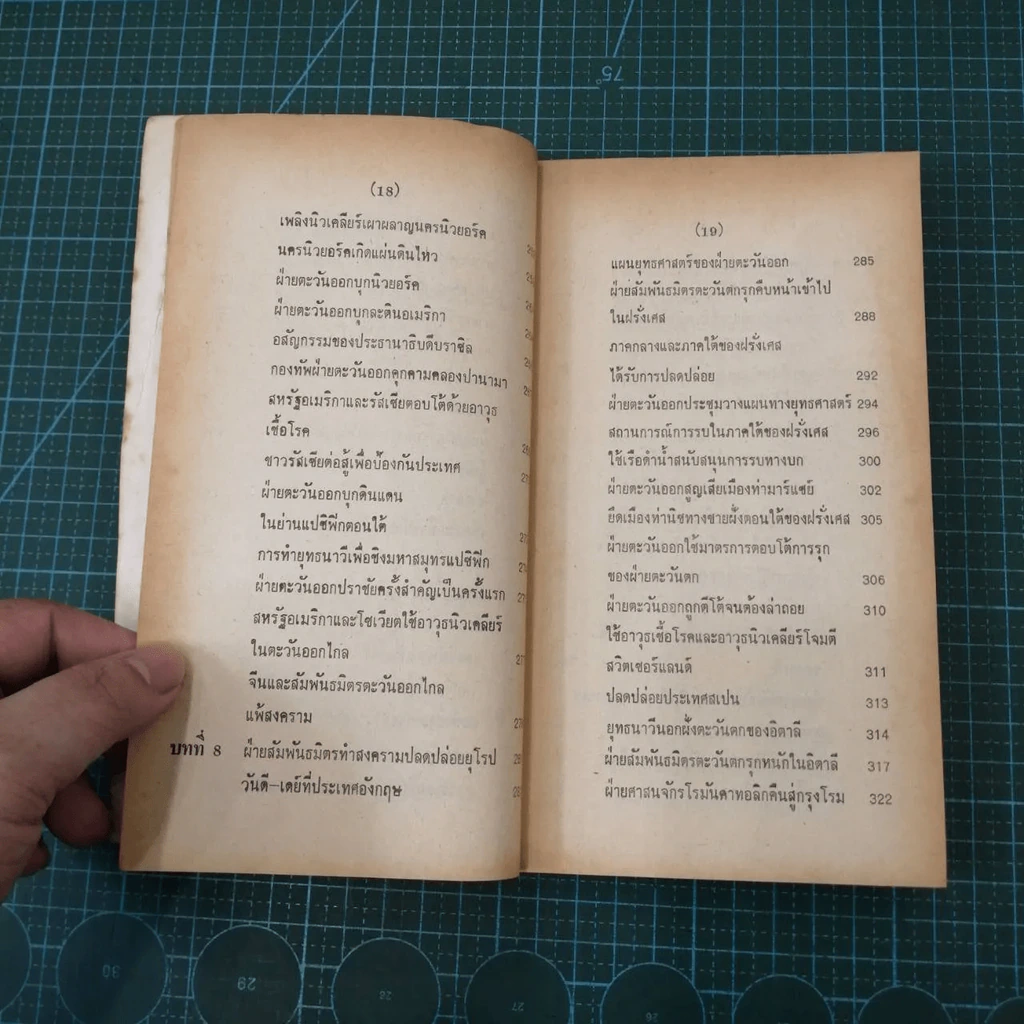 (18)
เพลิงนิวเคลียร์เผาผลาญนครนิวยอร์ค
นครนิวยอร์คเกิดแผ่นดินไหว
ฝ่ายตะวันออกบุกนิวยอร์ค
ฝ่ายตะวันออกบุกละตินอเมริกา
อสัญกรรมของประธานาธิบดีบราซิล
กองทัพฝ่ายตะวันออกคุกคามคลองปานามา
สหรัฐอเมริกาและรัสเซียตอบโต้ด้วยอาวุธ
เชื้อโรค
ชาวรัสเซียต่อสู้เพื่อป้องกันประเทศ
ฝ่ายตะวันออกบุกดินแดน
ในย่านแปซิฟิกตอนใต้
การทำยุทธนาวีเพื่อชิงมหาสมุทรแปซิฟิก
ฝ่ายตะวันออกปราชัยครั้งสำคัญเป็นครั้งแรก
สหรัฐอเมริกาและโซเวียตใช้อาวุธนิวเคลียร์
ในตะวันออกไกล
จีนและสัมพันธมิตรตะวันออกไกล
แพ้สงคราม
บทที่ 8 ฝ่ายสัมพันธมิตรทำสงครามปลดปล่อยยุโรป
วันดี-เดย์ที่ประเทศอังกฤษ
(19)
แผนยุทธศาสตร์ของฝ่ายตะวันออก 285
ฝ่ายสัมพันธมิตรตะวันตกรุกคืบหน้าเข้าไป
ในฝรั่งเศส 288
ภาคกลางและภาคใต้ของฝรั่งเศส
ได้รับการปลดปล่อย 292
ฝ่ายตะวันออกประชุมวางแผนทางยุทธศาสตร์ 294
สถานการณ์การรบในภาคใต้ของฝรั่งเศส 296
ใช้เรือดำน้ำสนับสนุนการรบทางบก 300
ฝ่ายตะวันออกสูญเสียเมืองท่ามาร์แซย์ 302
ยึดเมืองท่านิซทางชายฝั่งตอนใต้ของฝรั่งเศส 305
ฝ่ายตะวันออกใช้มาตรการตอบโต้การรุก
ของฝ่ายตะวันตก 306
ฝ่ายตะวันออกถูกตีโต้จนต้องล่าถอย 310
ใช้อาวุธเชื้อโรคและอาวุธนิวเคลียร์โจมตี
สวิตเซอร์แลนด์ 311
ปลดปล่อยประเทศสเปน 313
ยุทธนาวีนอกฝั่งตะวันตกของอิตาลี 314
ฝ่ายสัมพันธมิตรตะวันตกรุกหนักในอิตาลี 317
ฝ่ายศาสนจักรโรมันคาทอลิกคืนสู่กรุงโรม 322